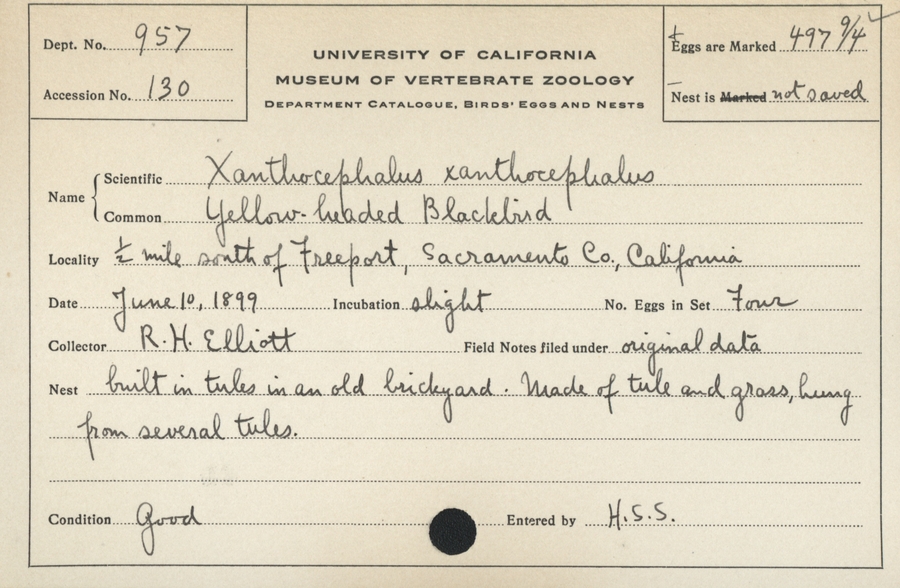 Dept. No. 957
Accession No. 130
UNIVERSITY OF CALIFORNIA
MUSEUM OF VERTEBRATE ZOOLOGY
DEPARTMENT CATALOGUE, BIRDS' EGGS AND NESTS
Eggs are Marked 497 9/4
Nest is Marked not saved
Name
Scientific Xanthocephalus xanthocephalus
Common Yellow-headed Blackbird
Locality ½ mile south of Freeport, Sacramento Co., California
Date June 10, 1899 Incubation slight No. Eggs in Set Four
Collector R. H. Elliott Field Notes filed under original data
Nest built in tules in an old brickyard. Made of tule and grass, hung
from several tules.
Condition Good Entered by H.S.S.